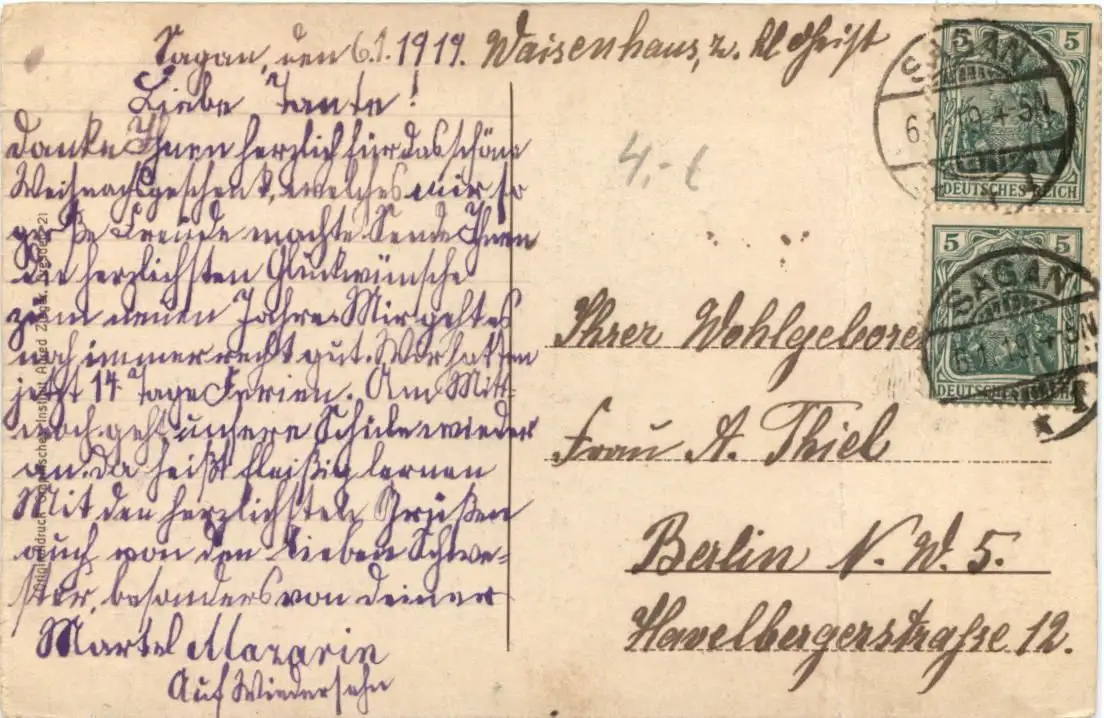 Sagan, den 6.1.1919. Waisenhaus, z. hl Geist
Liebe Tante!
Danke Ihnen herzlich für das schöne
Weihnachsgeschenk, welches mir so
große Freude machte. Sende Ihnen
die herzlichsten Glückwünsche
zum neuen Jahre. Mir geht es
noch immer recht gut. Wir hatten
jetzt 14 Tage Ferien. Am Mitt-
woch geht unsere Schule wieder
an. da heißt fleißig lernen
Mit den herzlichsten Grüßen
auch von den lieben Schwe-
ster, besonders von deiner
Martel
Auf Wiedersehn
4,-
Ihrer Wohlgeboren
Frau A. Thiel
Berlin N. W. 5.
Havelbergerstraße 12.
5 5
DEUTSCHES REICH
SAGAN
6.1.19.4-5N
5 5
DEUTSCHES REICH
SAGAN
6.1.19.4-5N